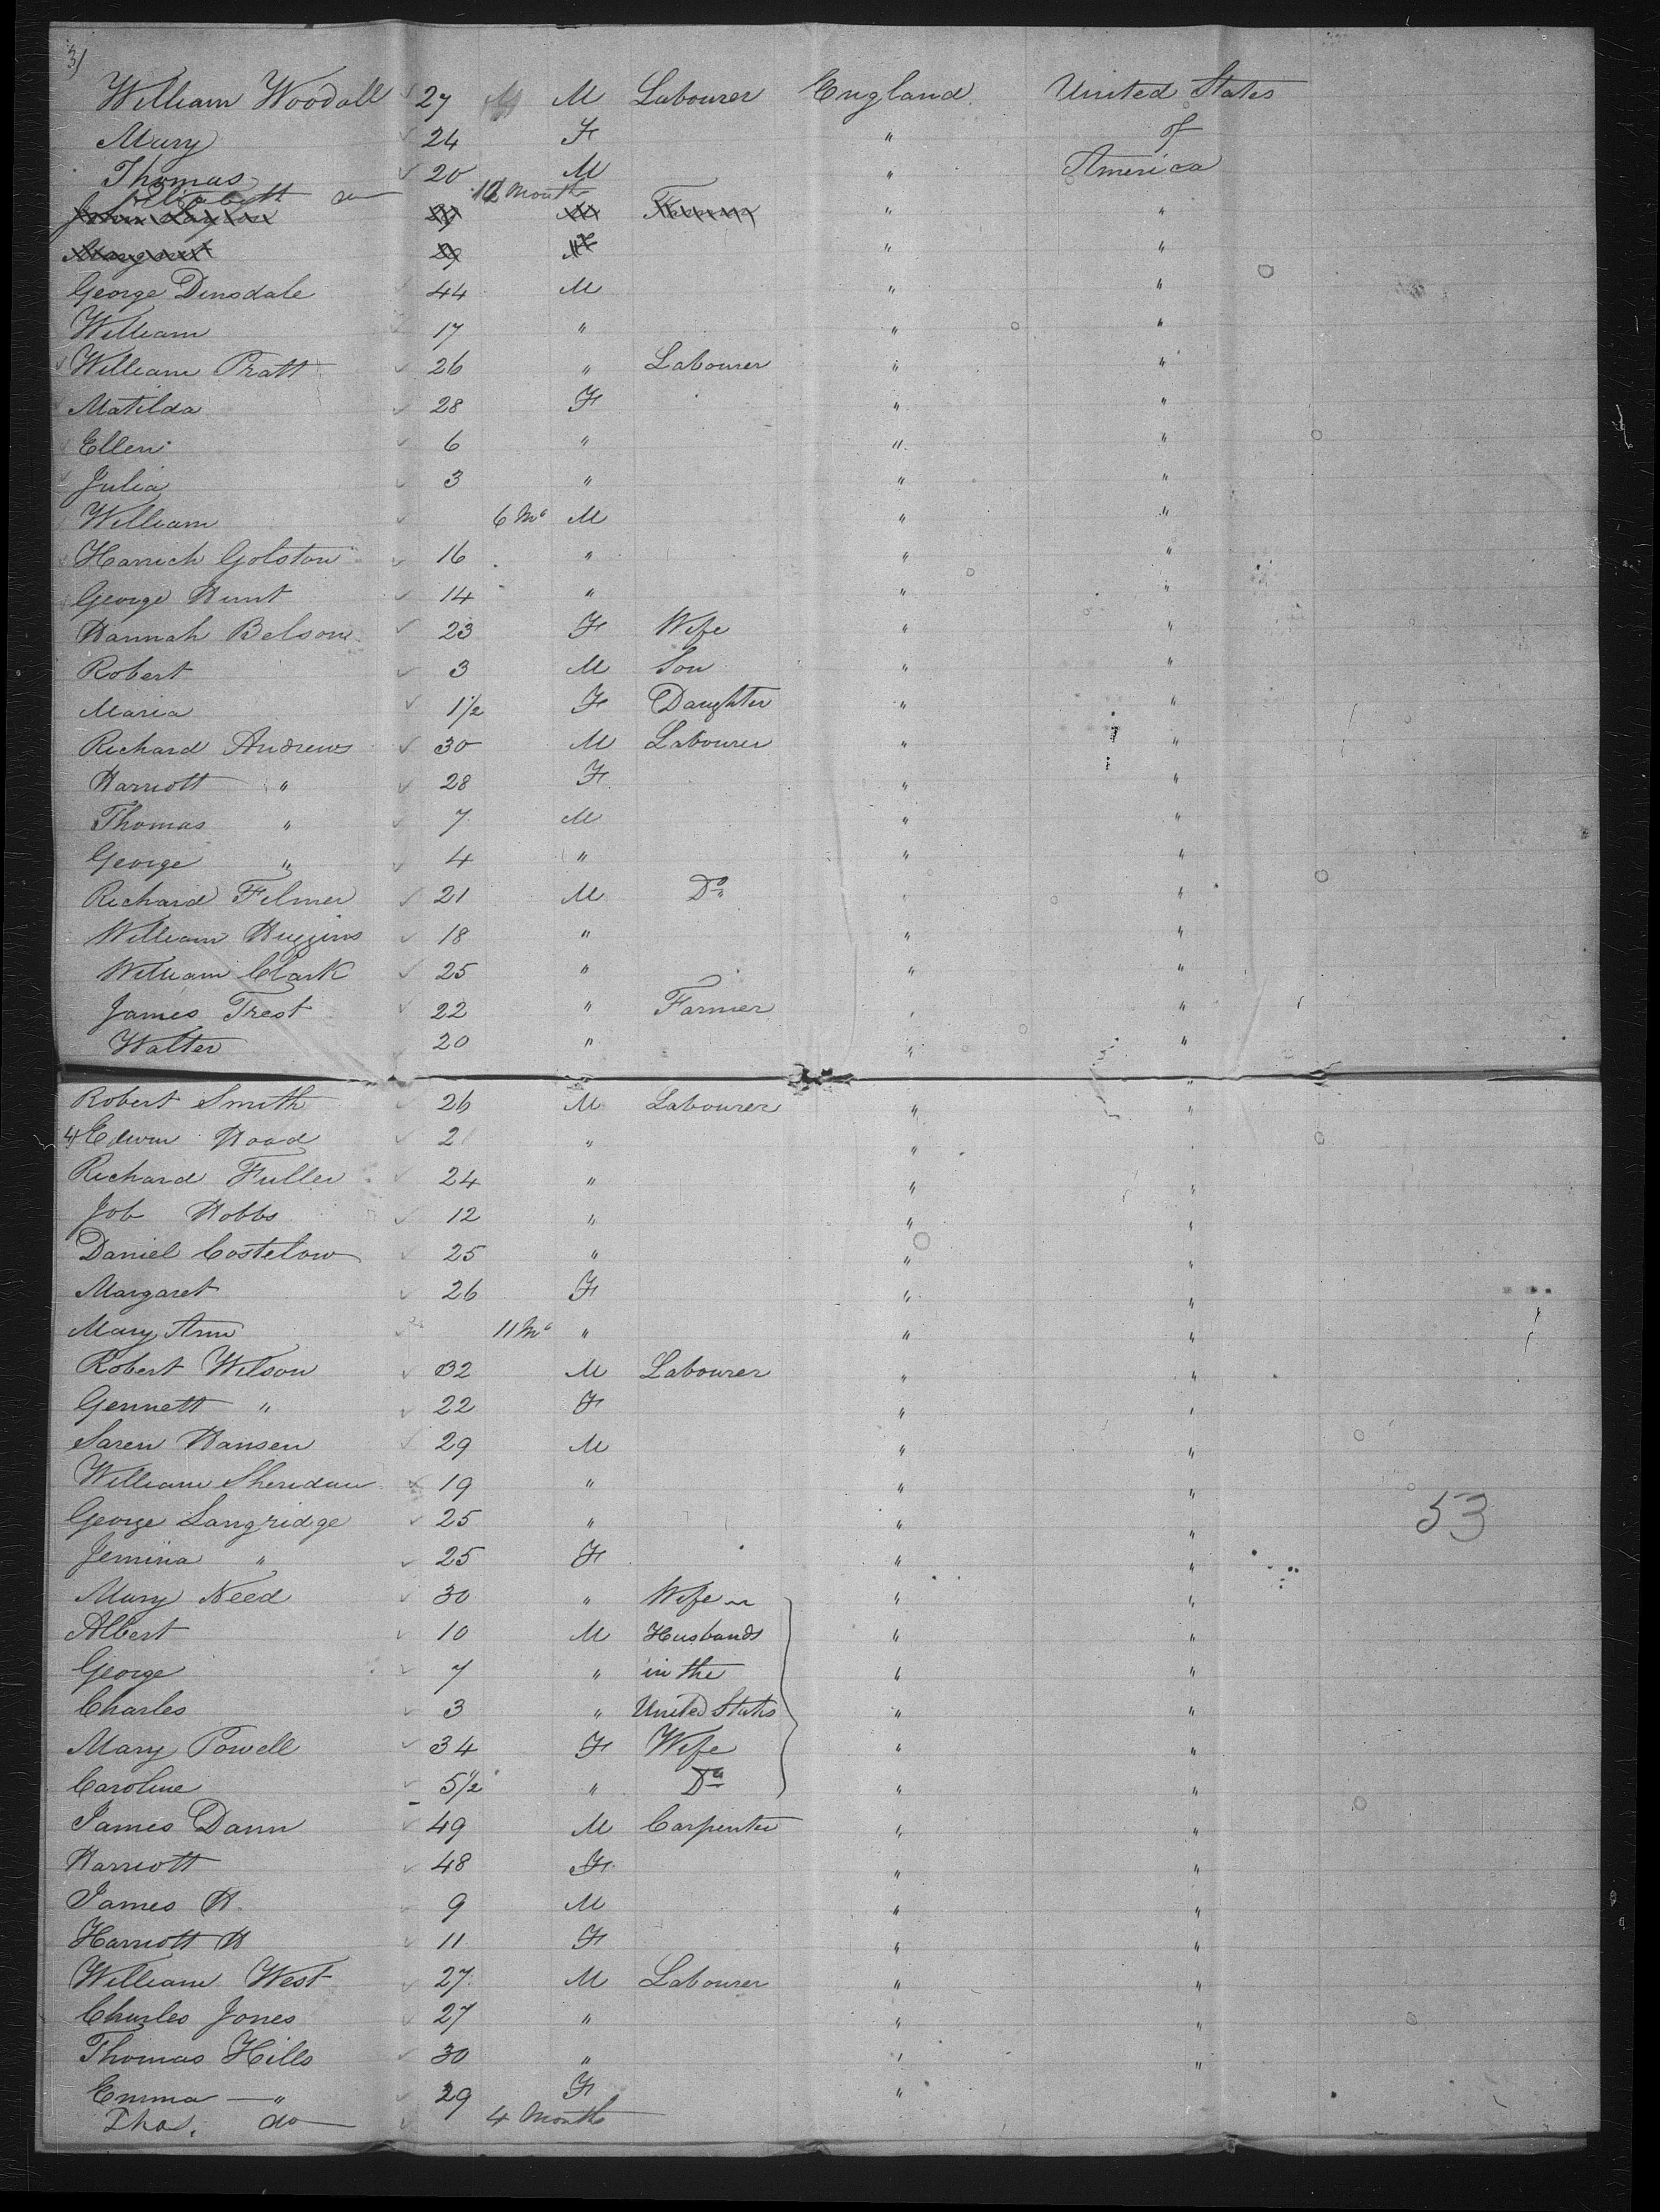 3)
William Woodall 27 M Labourer England United States
Mary 24 F " of
Thomas 20 M " America
Elizabeth do 12 Month
" "
Margaret 29 " "
George Dinsdale 44 M " "
William 17 " " "
William Pratt 26 " Labourer " "
Matilda 28 F " "
Ellen 6 " " "
Julia 3 " " "
William 6 Ms M " "
Golston 16 " " "
George Hunt 14 " " "
Hannah Belsom 23 F Wife " "
Robert 3 M Son " "
Maria 1½ F Daughter " "
Richard Andrews 30 M Labourer " "
Harriott " 28 F " "
Thomas " 7 M " "
George " 4 " " "
Richard Filmer 21 M Do " "
William Huggins 18 " " "
William Clark 25 " " "
James Trest 22 " Farmer " "
Walter 20 " " "
Robert Smith 26 M Labourer " "
4) Edwin Hoad 21 " " "
Richard Fuller 24 " " "
Job Hobbs 12 " " "
Daniel Costelow 25 " " "
Margaret 26 F " "
Mary Ann 11 Ms " " "
Robert Wilson 32 M Labourer " "
Gennett " 22 F " "
Saren Hansen 29 M " "
William Sheridan 19 " " "
George Langridge 25 " " "
Jemina " 25 F " "
Mary Need 30 " Wife " "
Albert 10 M Husbands " "
George 7 " in the " "
Charles 3 " United States " "
Mary Powell 34 F Wife " "
Caroline 5½ " Da " "
James Dann 49 M Carpenter " "
Harriott 48 F " "
James H. 9 M " "
Harriott H 11 F " "
William West 27 M Labourer " "
Charles Jones 27 " " "
Thomas Hills 30 " " "
Emma " 29 F "
Thos. do 4 Months
53